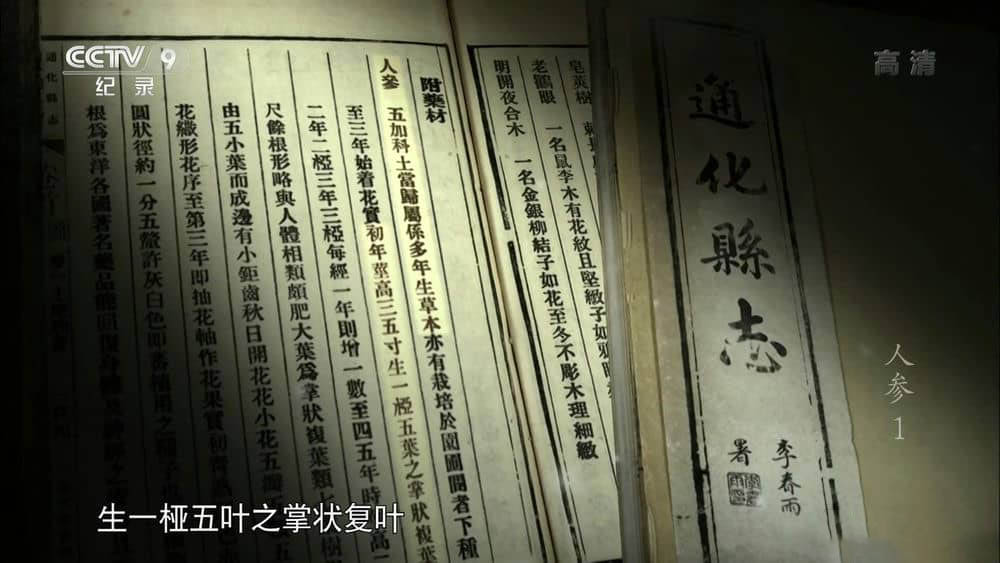 CCTV 9
纪录
高清
通化縣志
李春雨
署
人参1
皂莢樹
老鸛眼 一名鼠李木有花紋且堅緻子如
明開夜合木 一名金銀柳結子如花至冬不彫木理細緻
附藥材
人參 五加科土當歸屬係多年生草本亦有栽培於園圃間者下種
至三年始着花實初年莖高三五寸生一椏五葉之掌狀複葉
二年二椏三年三椏每經一年則增一數至四五年時高二
尺餘根形略與人體相類頗肥大葉爲掌狀複葉類七
由五小葉而成邊有小鋸齒秋日開花花小花五瓣
花繖形花序至第三年即抽花軸作花果實初
圓狀徑約一分五釐許灰白色即
根爲東洋各國著名藥品能回復身體
通化縣志
生一桠五叶之掌状复叶